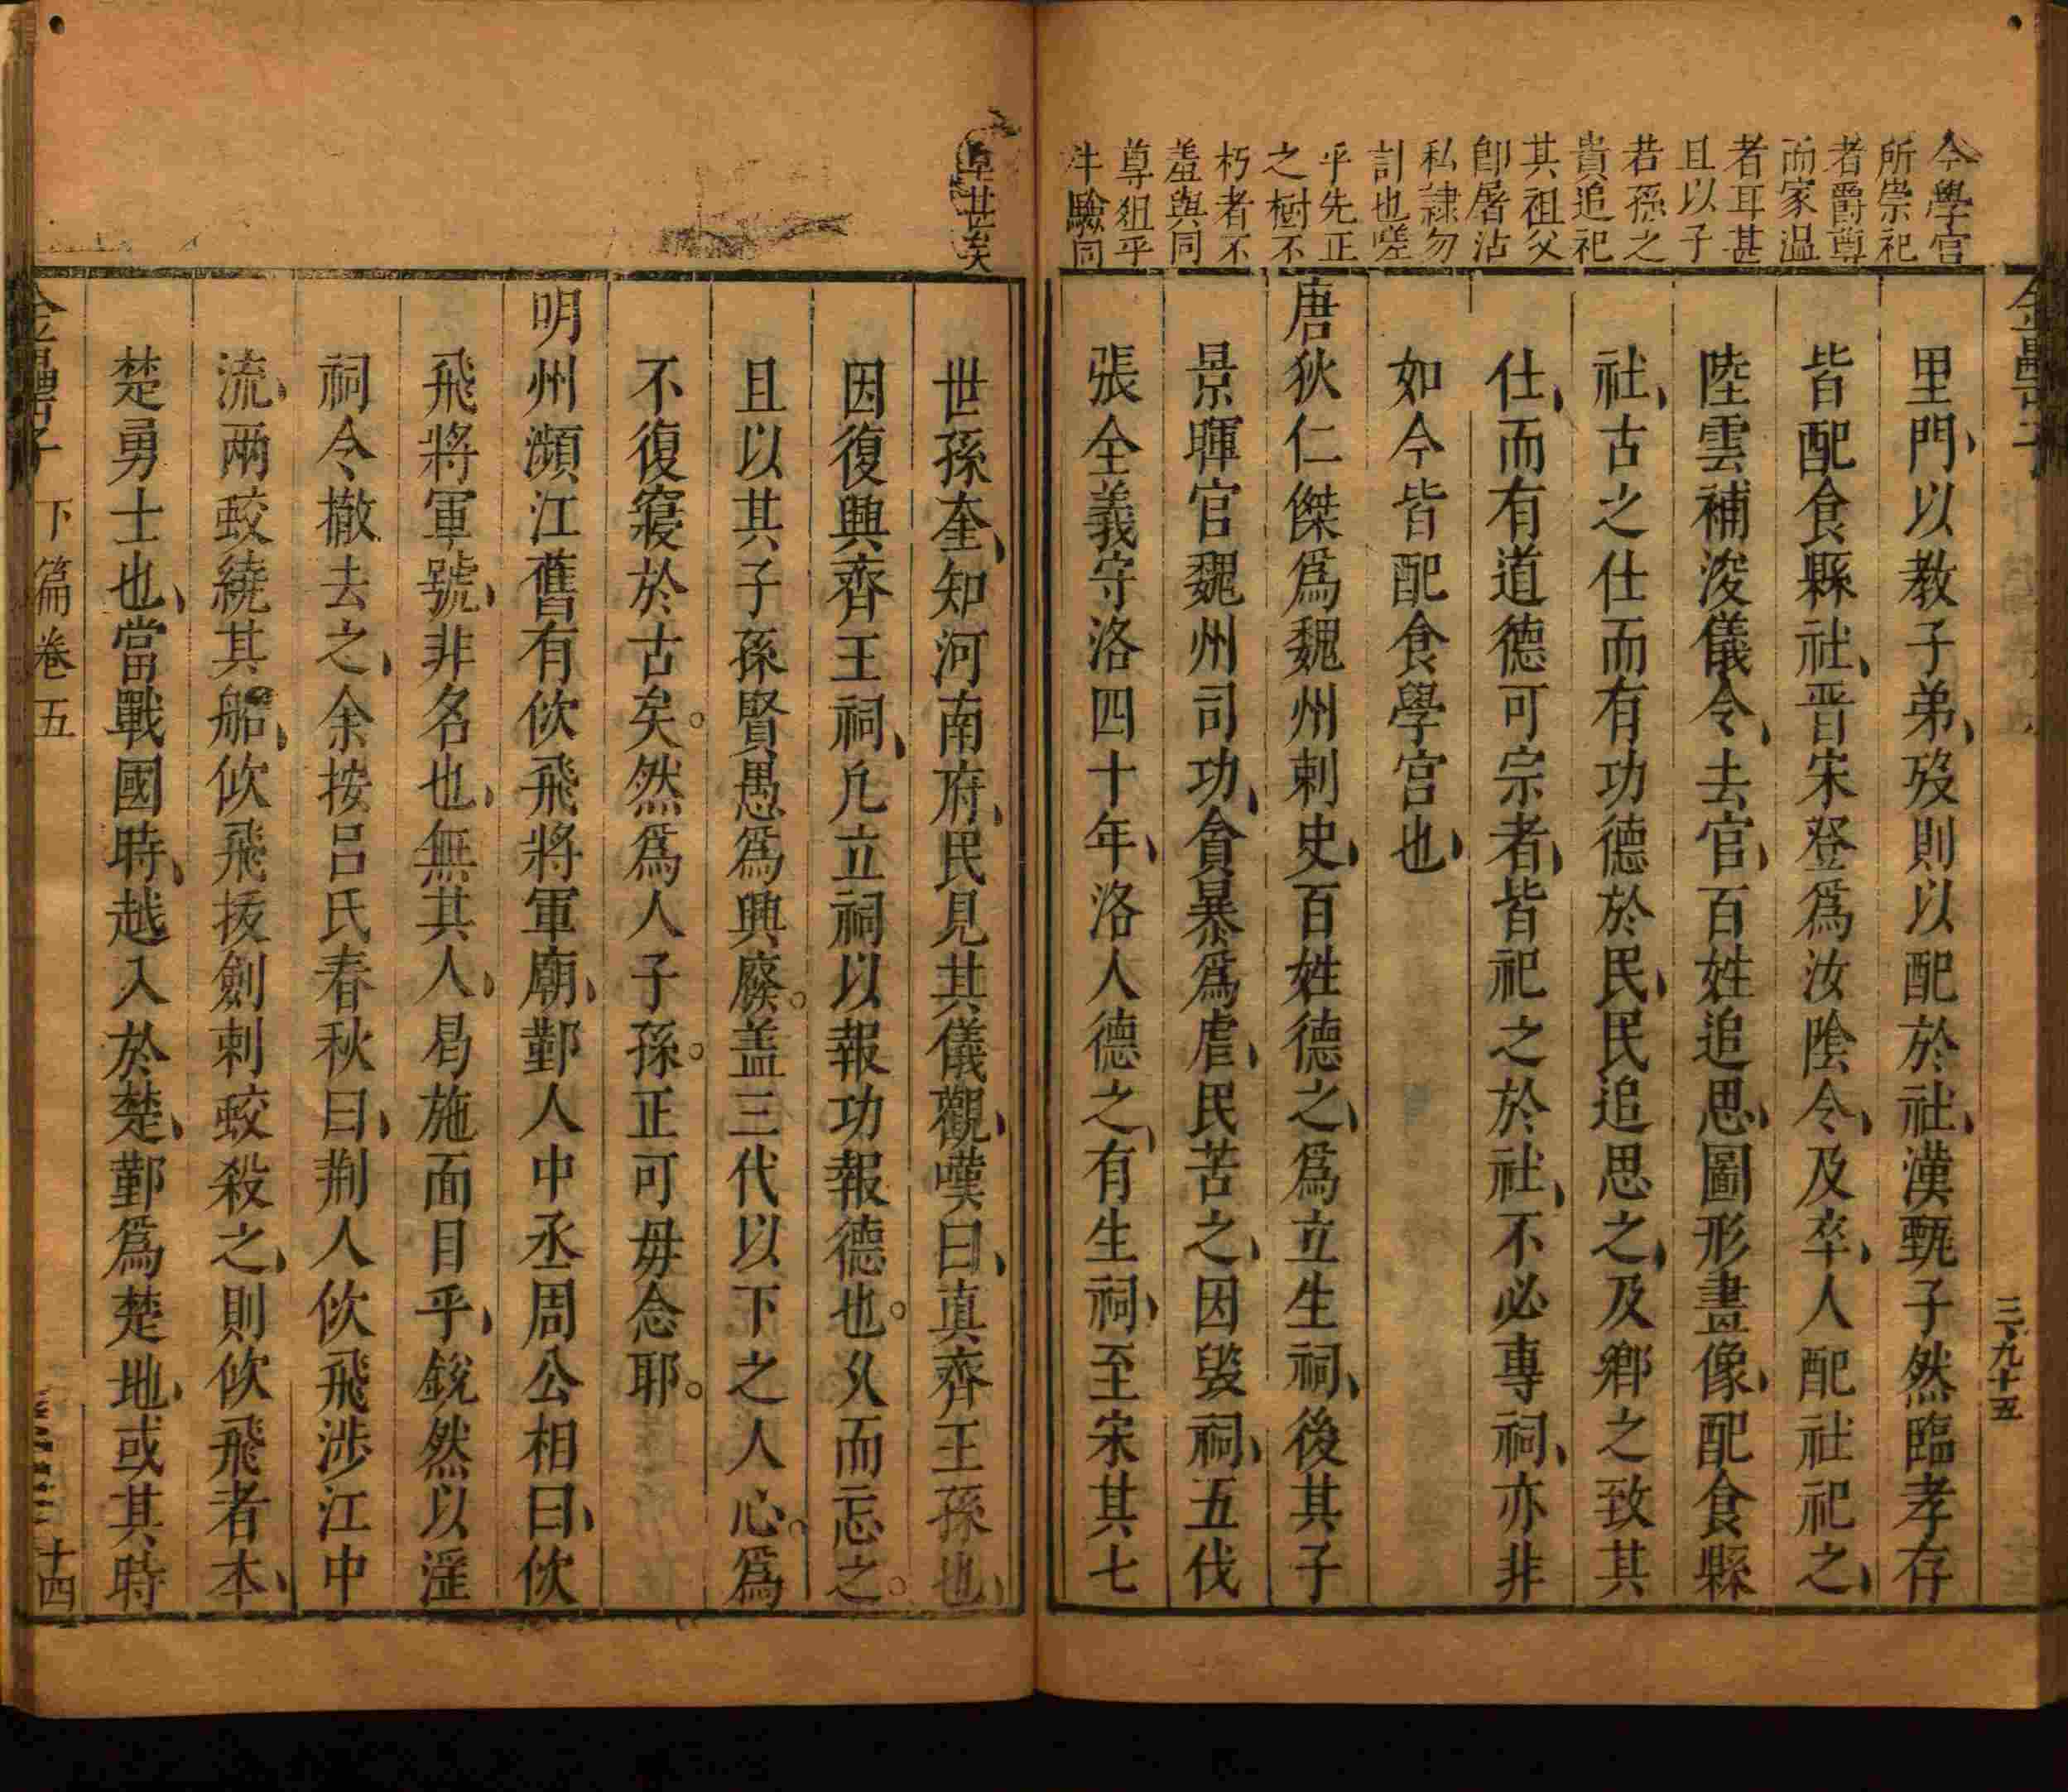 今學宮
所崇祀
者爵尊
而家温
者耳甚
且以子
若孫之
貴追祀
其祖父
卽屠沽
私隷勿
計也嗟
乎先正
之樹不
朽者不
羞與同
尊俎乎
牛驗同
里門以教子弟歿則以配於社漢甄子然臨孝存
皆配食縣社晋宋登爲汝陰令及卒人配社祀之
陸雲補浚儀令去官百姓追思圖形畫像配食縣
社古之仕而有功德於民民追思之及鄉之致其
仕而有道德可宗者皆祀之於社不必專祠亦非
如今皆配食學宮也
唐狄仁傑爲魏州刺史百姓德之爲立生祠後其子
景暉官魏州司功貪暴爲虐民苦之因毀祠五伐
張全義守洛四十年洛人德之有生祠至宋其七
三九十五
世孫奎知河南府民見其儀觀嘆曰真齊王孫也
因復興齊王祠凡立祠以報功報德也乆而忘之
且以其子孫賢愚爲興廢盖三代以下之人心爲
不復窺於古矣然爲人子孫正可毋念耶
明州瀕江舊有佽飛將軍廟鄞人中丞周公相曰佽
飛將軍號非名也無其人曷施面目乎銳然以淫
祠令撤去之余按吕氏春秋曰荆人佽飛涉江中
流兩蛟繞其船佽飛拔劍刺蛟殺之則佽飛者本
楚勇士也當戰國時越入於楚鄞爲楚地或其時
下篇卷五
十四